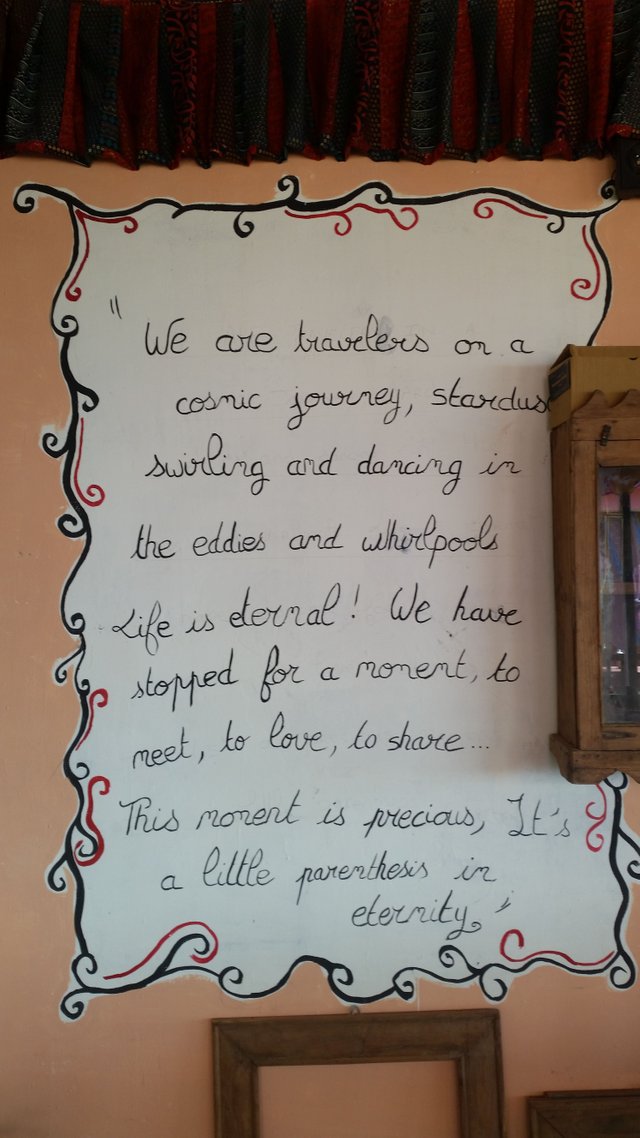 " We are travelers on a
cosmic journey, stardus
swirling and dancing in
the eddies and whirlpools
Life is eternal! We have
stopped for a moment, to
meet, to love, to share...
This moment is precious, It's
a little parenthesis in
eternity. "